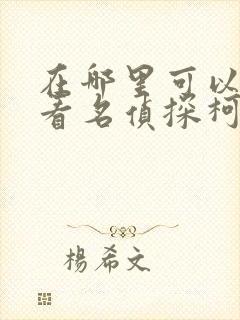 在哪里可以
看名侦探柯
楊希文